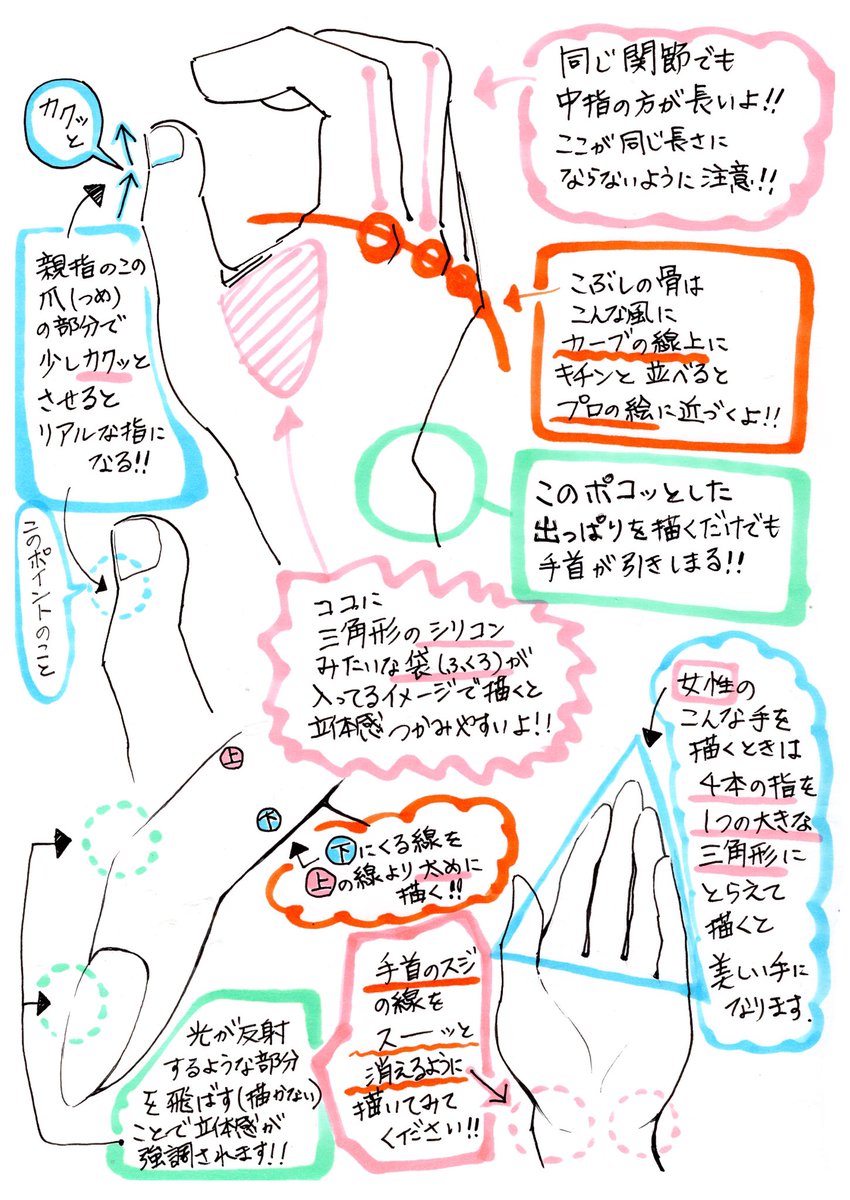 カクッ
と
同じ関節でも
中指の方が長いよ!!
ここが同じ長さに
ならないように注意!!
親指のこの
爪(つめ)
の部分で
少しカクッと
させると
リアルな指に
なる!!
こぶしの骨は
こんな風に
カーブの線上に
キチンと並べると
プロの絵に近づくよ!!
このポコッとした
出っぱりを描くだけでも
手首が引きしまる!!
このポイントのこと
ココに
三角形のシリコン
みたいな袋(ふくろ)が
入ってるイメージで描くと
立体感つかみやすいよ!!
女性の
こんな手を
描くときは
4本の指を
1つの大きな
三角形に
とらえて
描くと
美しい手に
なります.
上
下
下にくる線を
上の線より太めに
描く!!
手首のスジ
の線を
スーーッと
消えるように
描いてみて
ください!!
光が反射
するような部分
を飛ばす(描かない)
ことで立体感が
強調されます!!